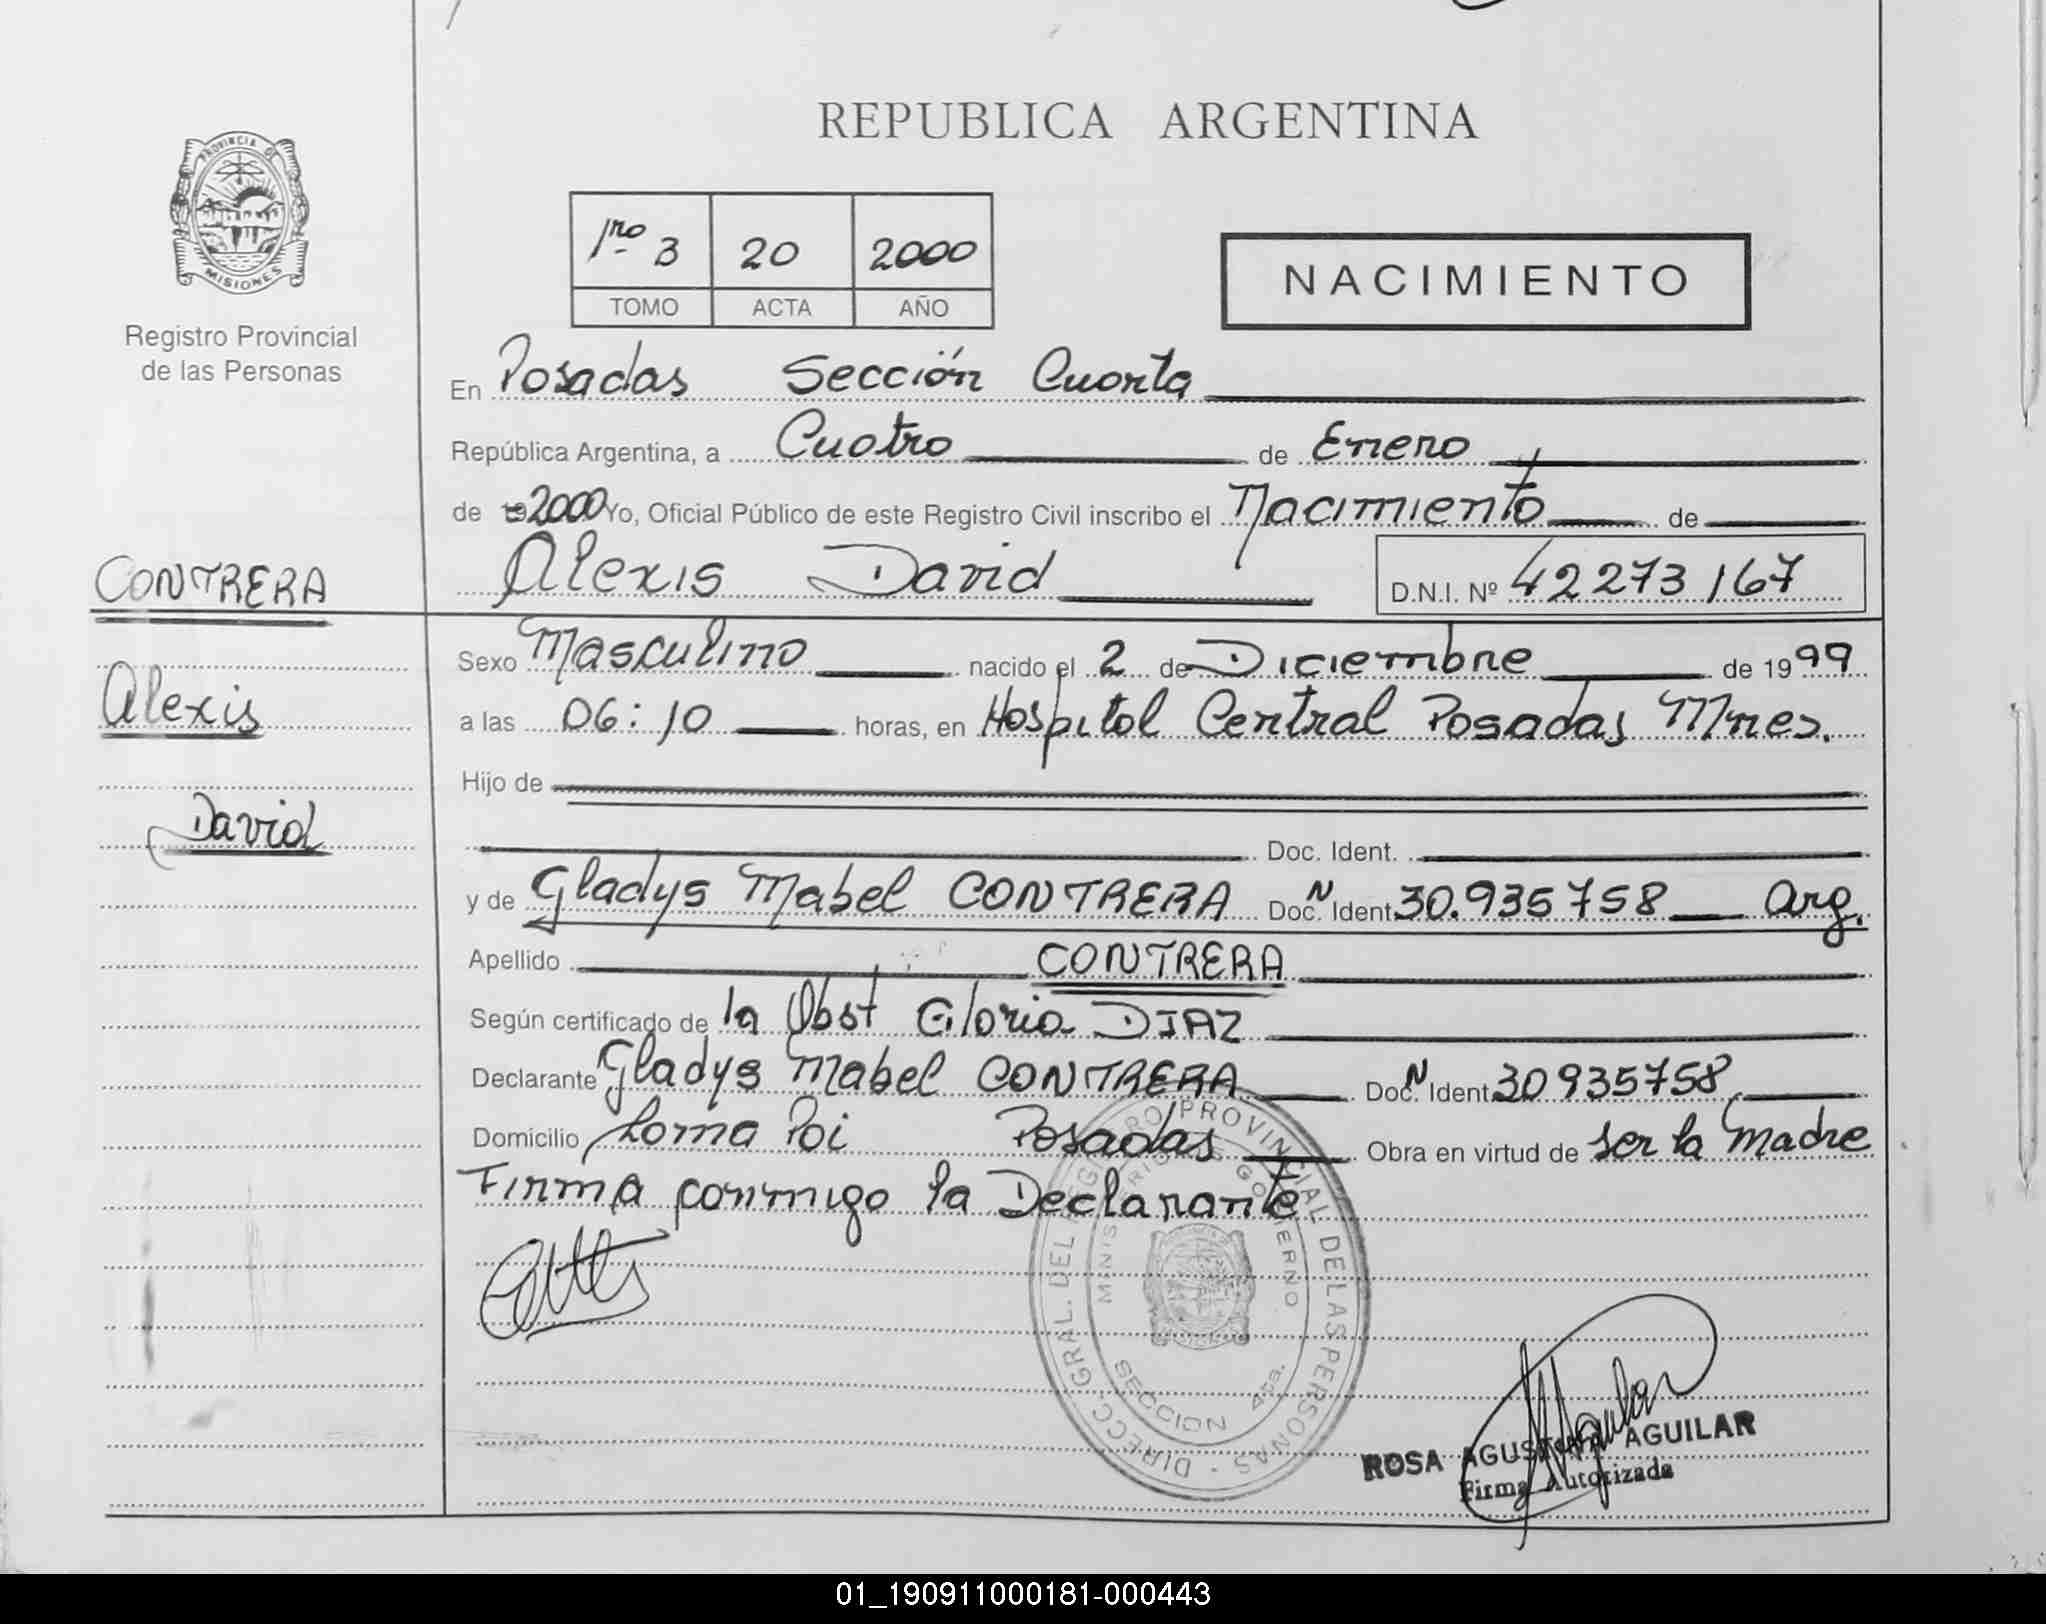 REPUBLICA ARGENTINA
PROVINCIA DE
MISIONES
Registro Provincial
de las Personas
1ro 3 20 2000
TOMO ACTA AÑO
NACIMIENTO
En Posadas Sección Cuarta
República Argentina, a Cuatro de Enero
de 19 2000 Yo, Oficial Público de este Registro Civil inscribo el Nacimiento de
Alexis David D.N.I. Nº 42273167
CONTRERA
Alexis
David
Sexo Masculino nacido el 2 de Diciembre de 1999
a las 06:10 horas, en Hospital Central Posadas Mnes.
Hijo de
Doc. Ident.
y de Gladys Mabel CONTRERA Doc. N Ident 30.935758 Arg.
Apellido CONTRERA
Según certificado de la Obst Gloria DIAZ
Declarante Gladys Mabel CONTRERA Doc. N Ident 30935758
Domicilio Loma Poi Posadas Obra en virtud de ser la Madre
Firma conmigo la Declarante
DIRECC. GRAL. DEL REGISTRO PROVINCIAL DE LAS PERSONAS
GOBIERNO
SECCION 4ta.
Aguilar
ROSA AGUSTINA AGUILAR
Firma Autorizada
01_190911000181-000443